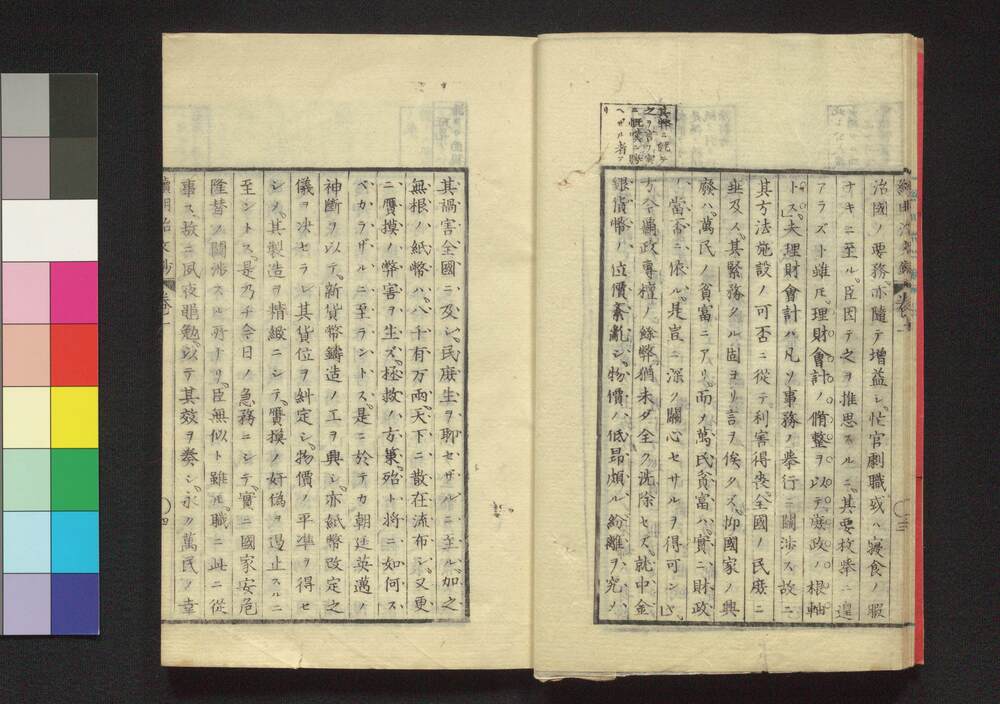 其弊ニ就テ
之ヲ言ウ実
ニ慨嘆ニ勝
ヘザル者ア
リ
治國ノ要務、亦隨テ增益シ、忙官劇職、或ハ寢食ノ暇
ナキニ至ル、臣因テ之ヲ推思スルニ、其要枚擧ニ遑
アラズト雖モ、理財會計ノ脩整ヲ以テ、庶政ノ根軸
トス、」夫理財會計ハ凡ソ事務ノ擧行ニ關渉ス、故ニ
其方法施設ノ可否ニ從テ、利害得喪、全國ノ民庶ニ
延及ス、其緊務タル固ヨリ言ヲ俟タズ、抑國家ノ興
廢ハ、萬民ノ貧富ニアリ、而メ萬民貧富ハ、實ニ財政
ノ當否ニ依ル、是豈ニ深ク關心セサルヲ得可ンヤ、」
方今覊政專擅ノ餘弊、猶未ダ全ク洗除セズ、就中金
銀貨幣ノ位價紊亂シ、物價ハ低昂頗ル紛離ヲ究メ、
其禍害全國ニ及シ、民庶生ヲ聊セザルニ至ル、加之
無根ノ紙幣ハ、八千有万兩、天下ニ散在流布シ、又更
ニ贋摸ノ弊害ヲ生ズ、拯救ノ方策、殆ト將ニ如何ス
ベカラザルニ至ラントス、是ニ於テカ朝廷英邁ノ
神斷ヲ以テ、新貨幣鑄造ノ工ヲ興シ、亦紙幣改定之
儀ヲ决セラレ其貨位ヲ糾定シ、物價ノ平準ヲ得セ
シメ、其製造ヲ精緻ニシテ、贋摸ノ奸偽ヲ遏止スルニ
至ントス、是乃チ今日ノ急務ニシテ、實ニ國家安危
隆替ノ關渉スル所ナリ、臣無似ト雖モ、職ニ此ニ從
事ス、故ニ夙夜黽勉、以テ其效ヲ奏シ、永ク萬民ノ幸
四